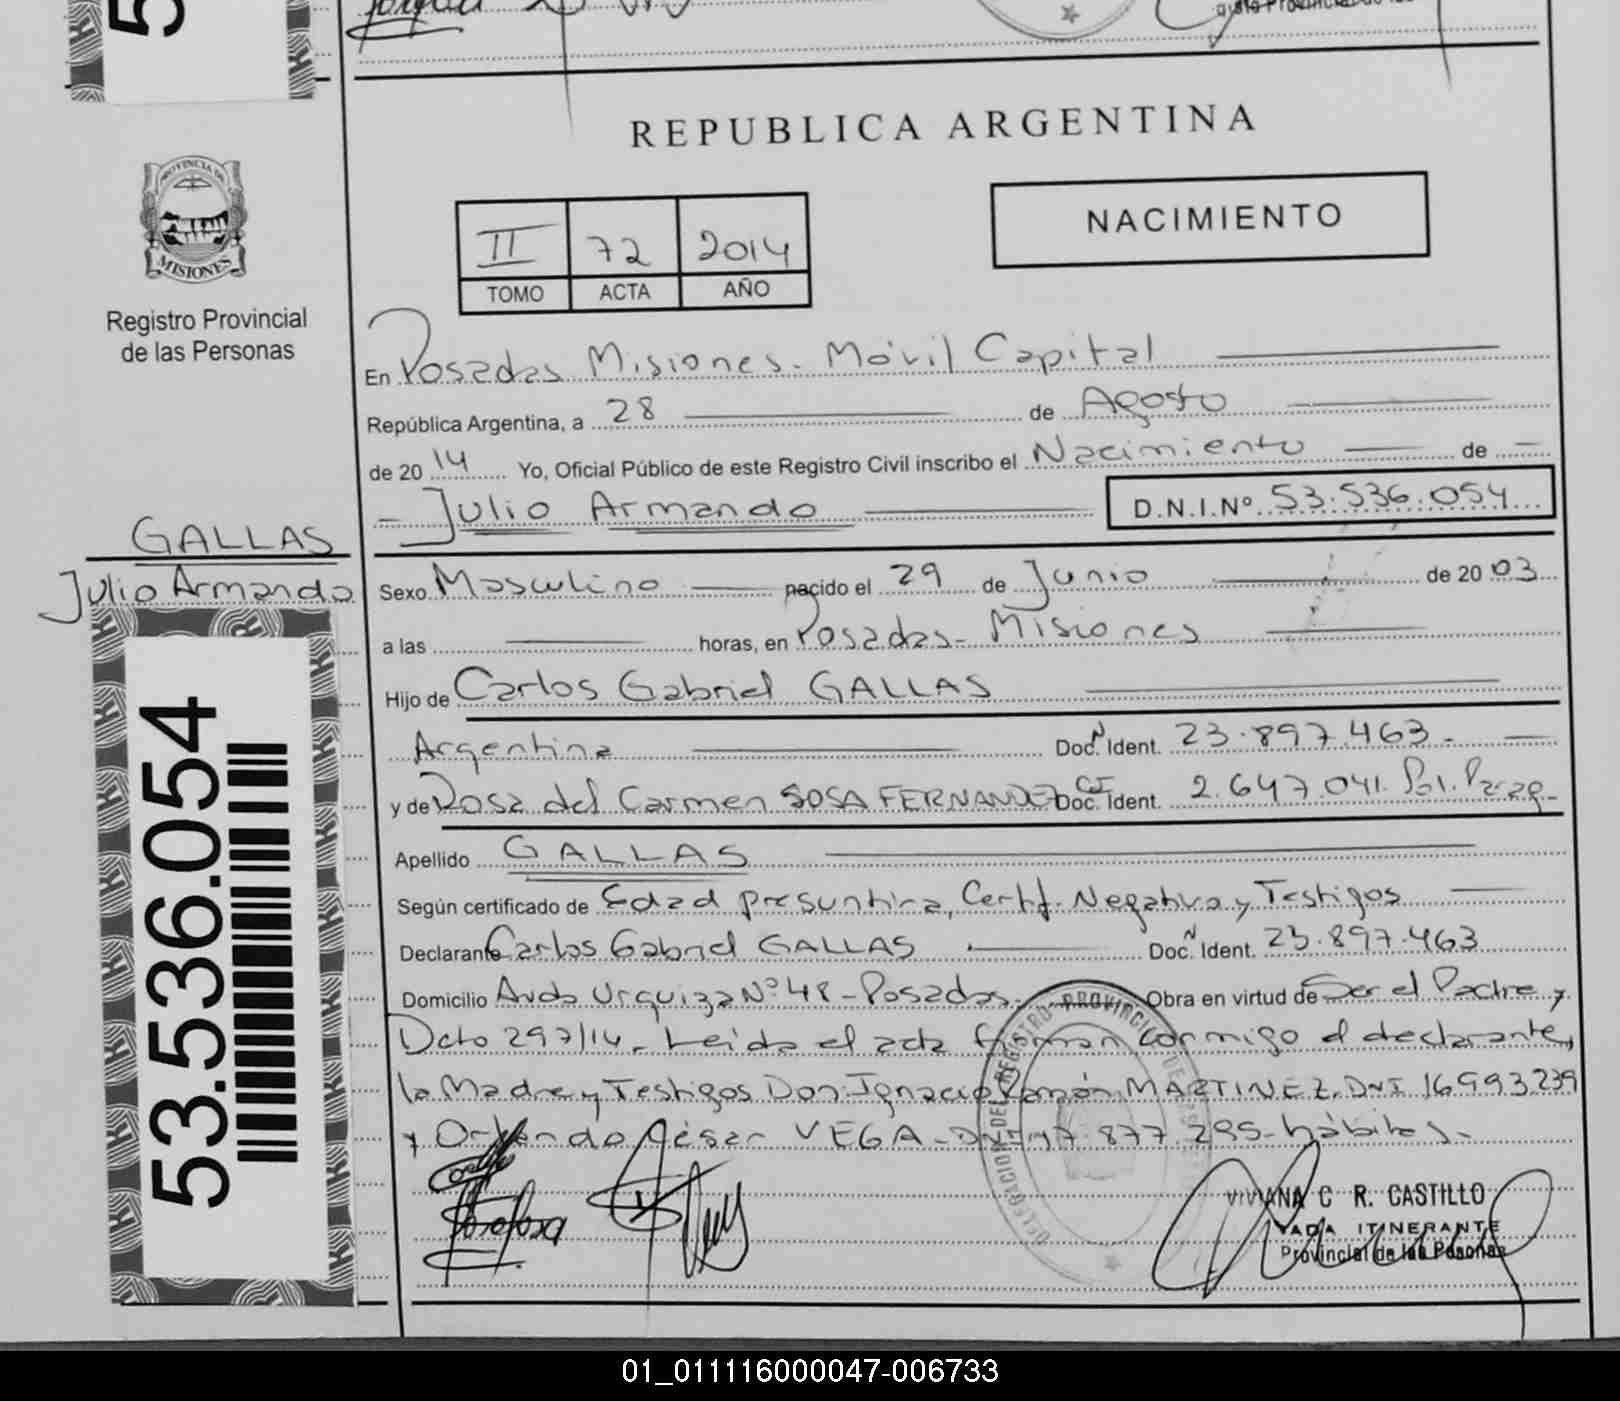 REPUBLICA ARGENTINA
PROVINCIA DE
MISIONES
Registro Provincial
de las Personas
II 72 2014
TOMO ACTA AÑO
NACIMIENTO
En Posadas Misiones. Móvil Capital
República Argentina, a 28 de Agosto
de 2014 Yo, Oficial Público de este Registro Civil inscribo el Nacimiento de
Julio Armando D.N.I.Nº 53.536.054
GALLAS
Julio Armando
Sexo Masculino nacido el 29 de Junio de 2003
a las horas, en Posadas - Misiones
Hijo de Carlos Gabriel GALLAS
Argentina Doc. N Ident. 23.897.463.
y de Rosa del Carmen SOSA FERNANDEZ Doc. CI Ident. 2.647.041. Pol. Parag.
Apellido GALLAS
Según certificado de Edad presuntiva, Certf. Negativo y Testigos
Declarante Carlos Gabriel GALLAS Doc. N Ident. 23.897.463
Domicilio Avda Urquiza Nº 48 - Posadas. Obra en virtud de Ser el Padre y
Dcto 297/14. Leída el acta firman conmigo el declarante,
la Madre y Testigos Don Ignacio Ramón MARTINEZ. DNI 16993239
y Orlando César VEGA - DNI 17.877.295 - hábiles.-
53.536.054
DELEGACION DEL REGISTRO PROVINCIAL DE LAS PERSONAS
VIVIANA C R. CASTILLO
ITINERANTE
Provincial de las Personas
01_011116000047-006733